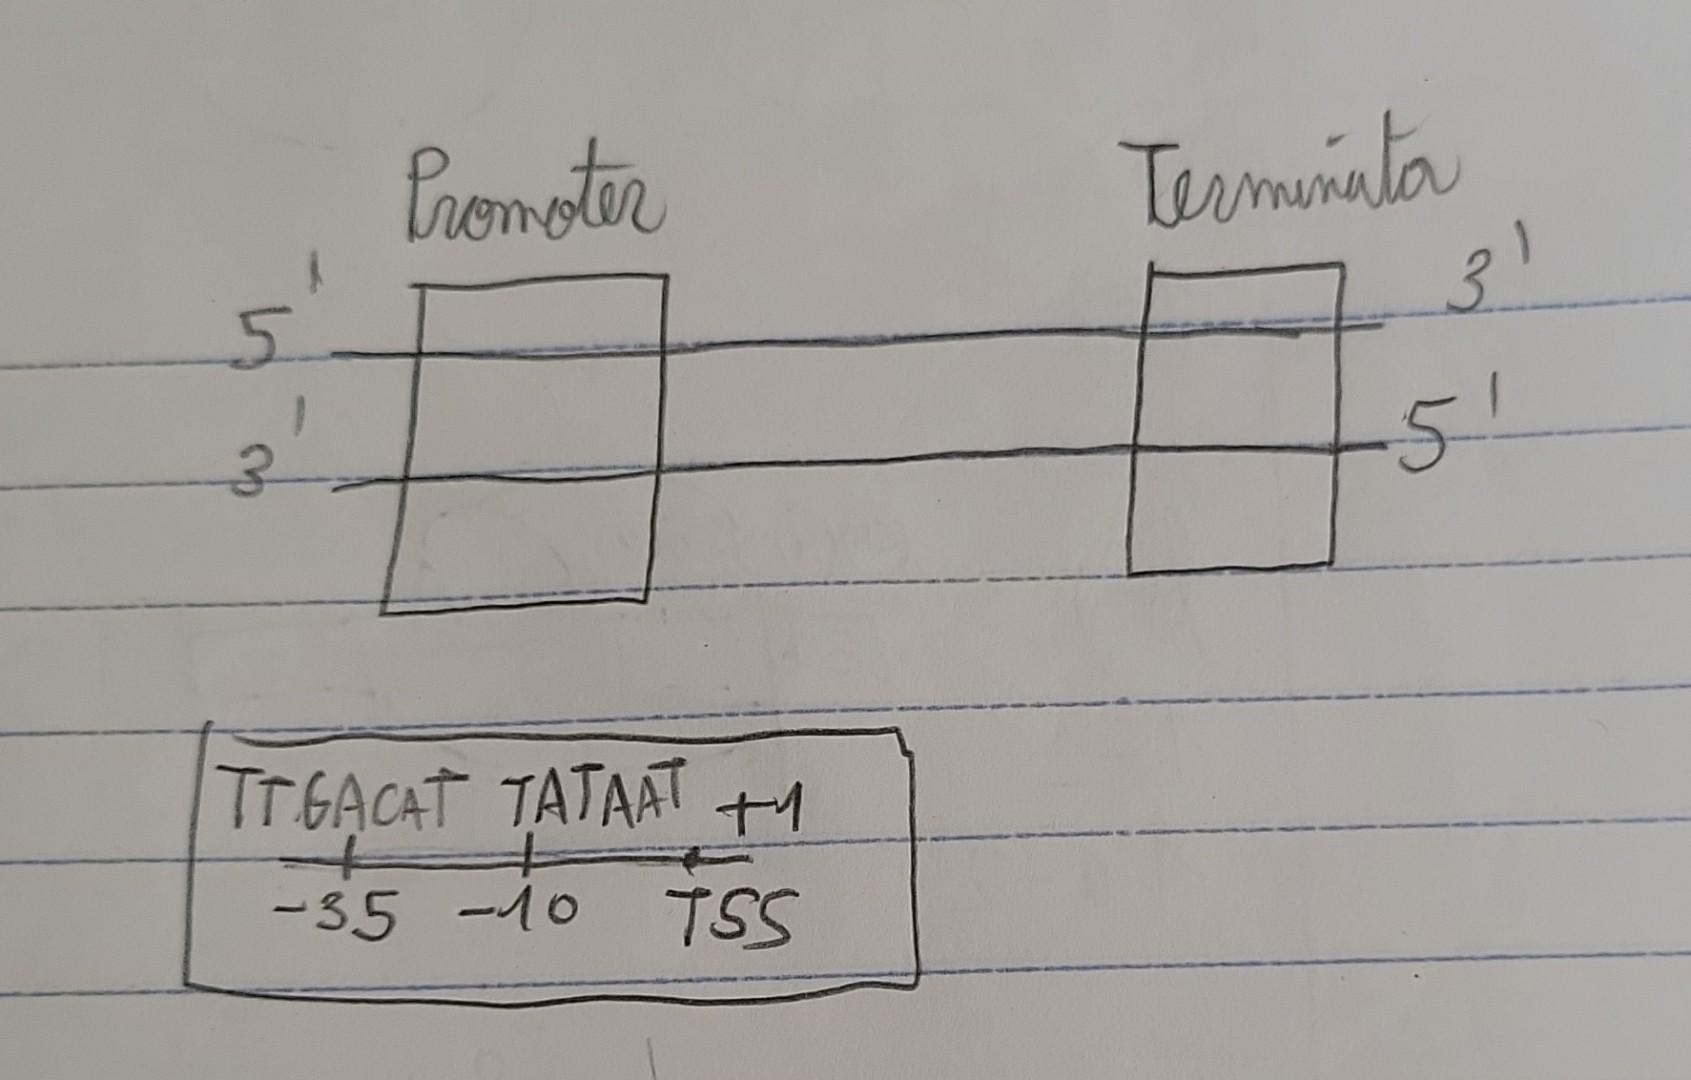 Promoter Terminator
5' 3'
3' 5'
TTGACAT TATAAT +1
-35 -10 TSS